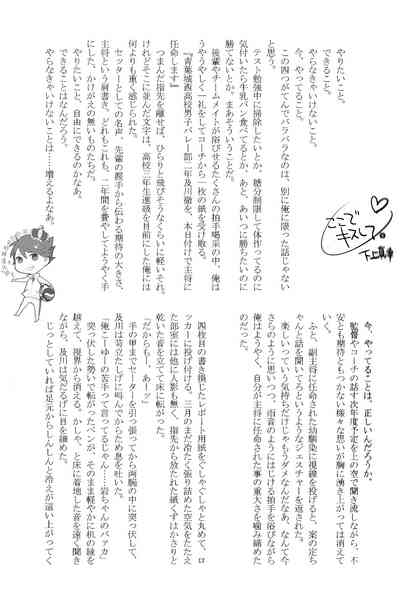 やりたいこと。
やらなきゃいけないこと。
できること。
今、やってること。
この四つがてんでバラバラなのは、別に俺に限った話じゃない
と思う。
テスト勉強中に掃除したいとか、糖分制限して体作ってるのに
気付いたら牛乳パン食べてるとか、あと、あいつに勝ちたいのに
勝てないとか。まあそういうことだ。
後輩やチームメイトが浴びせるたくさんの拍手喝采の中、俺は
うやうやしく一礼をしてコーチから一枚の紙を受け取る。
『青葉城西高校男子バレー部二年及川徹を、本日付けで主将に
任命します』
つまんだ指先を離せば、ひらりと飛びそうなくらいに軽いそれ。
けれどそこに並んだ文字は、高校三年生進級を目前にした俺には
何よりも重く感じられた。
セッターとしての名声、先輩の握手から伝わる期待の大きさ、
主将という肩書き、どれもこれも、二年間を費やしてようやく手
にした、かけがえの無いものたちだ。
やりたいこと、自由にできるのかなあ。
できることはなんだろう。
やらなきゃいけないことは……増えるよなあ。
ここで
キスして。
下上
今、やってることは、正しいんだろうか。
監督やコーチの話す次年度予定を上の空で聞き流しながら、不
安とも期待ともつかない様々な思いが胸に湧き上がっては消えて
いく。
ふと、副主将に任命された幼馴染に視線を投げると、案の定ち
ゃんと話を聞いてろというようなジェスチャーを返された。
楽しいっていう気持ちだけじゃもうダメなんだなあ、なんて今
さらのように思いつつ、雨音のようにはじける拍手を浴びながら
俺はようやく、自分が主将に任命された事の重大さを噛み締めた
のだった。
四枚目の書き損じたレポート用紙をぐしゃぐしゃと丸めて、ロ
ッカーに投げ付ける。三月のまだ冷たく張り詰めた空気をたたえ
た部室には他に人影も無く、指先から放たれた紙くずはかさりと
乾いた音を立てて床に転がった。
「だからもー、あーッ」
及川は苛立たしげに叫んでからため息を吐いた。
手の甲までセーターを引っ張ってから両腕の中に突っ伏して、
「俺こーゆーの苦手って言ってるじゃん……岩ちゃんのバァカ」
突っ伏した勢いで転がったペンが、そのまま軽やかに机の縁を
越えて、視界から消える。かしゃ、と床に着地した音を遠く聞き
ながら、及川は気だるげに目を細めた。
じっとしていれば足元からしんしんと冷えが這い上がってく